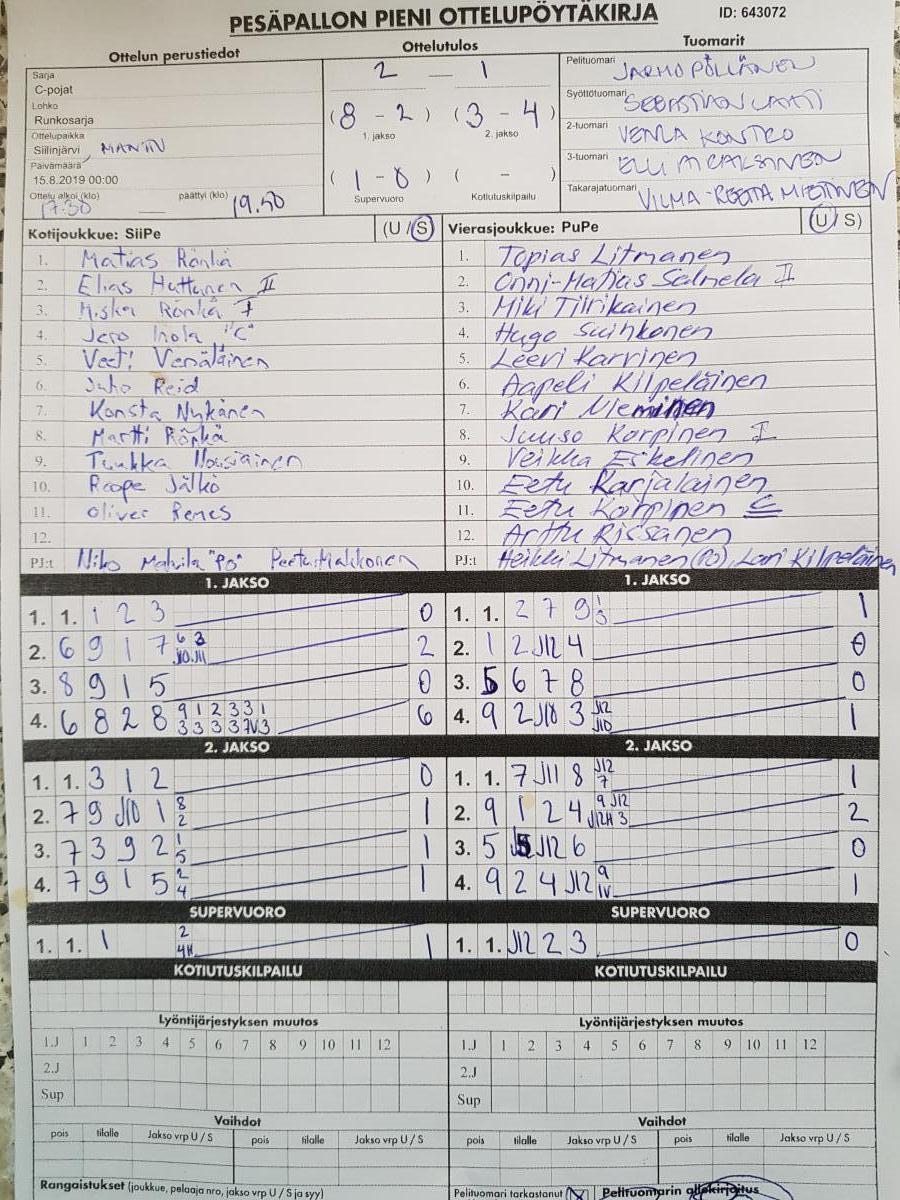 PESÄPALLON PIENI OTTELUPÖYTÄKIRJA
ID: 643072
Ottelun perustiedot
Sarja
C-pojat
Lohko
Runkosarja
Ottelupaikka
Siilinjärvi
Päivämäärä
15.8.2019 00:00
Ottelu alkoi (klo) päättyi (klo)
17.30 — 19.50
Ottelutulos
2 — 1
(8 - 2) (3 - 4)
1. jakso 2. jakso
(1 - 0) ( - )
Supervuoro Kotiutuskilpailu
Tuomarit
Pelituomari JARMO PÖLLÄNEN
Syöttötuomari SEBASTIAN
2-tuomari VENLA
3-tuomari
Takarajatuomari VILMA-REETA MIETTINEN
Kotijoukkue: SiiPe (U / S)
1. Matias Rönkä
2. Elias Huttunen II
3. Miska Rönkä I
4. Jero "C"
5. Veeti Venäläinen
6. Juho Reid
7. Konsta Nykänen
8. Martti Rönkä
9. Tuukka Nousiainen
10. Roope Jälkö
11. Oliver Renes
12.
PJ:t Niko "PO"
Vierasjoukkue: PuPe (U / S)
1. Topias Litmanen
2. Onni-Matias Salmela II
3. Miki Tiirikainen
4. Hugo Suihkonen
5. Leevi Karvinen
6. Aapeli Kilpeläinen
7. Kari Nieminen
8. Juuso Korpinen I
9. Veikka Eskelinen
10. Eetu Karjalainen
11. Eetu Korpinen C
12. Arttu Rissanen
PJ:t Heikki Litmanen (PO), Lari Kilpeläinen
1. JAKSO
1. 1. 1 2 3 0
2. 6 9 1 7 6 3 2
J10 J11
3. 8 9 1 5 0
4. 6 8 2 8 9 1 2 3 3 1 6
1. JAKSO
1. 1. 2 7 9 1 1
3
2. 1 2 J12 4 0
3. 5 6 7 8 0
4. 9 2 J10 3 J12 1
J10
2. JAKSO
1. 1. 3 1 2 0
2. 7 9 J10 1 8 1
2
3. 7 3 9 2 1 1
5
4. 7 9 1 5 2 1
4
2. JAKSO
1. 1. 7 J11 8 J12 1
7
2. 9 1 2 4 9 J12 2
J12H 3
3. 5 J12 6 0
4. 9 2 4 J12 9 1
IV
SUPERVUORO
1. 1. 1 2 1
4H
SUPERVUORO
1. 1. J12 2 3 0
KOTIUTUSKILPAILU
KOTIUTUSKILPAILU
Lyöntijärjestyksen muutos
1.J 1 2 3 4 5 6 7 8 9 10 11 12
2.J
Sup
Lyöntijärjestyksen muutos
1.J 1 2 3 4 5 6 7 8 9 10 11 12
2.J
Sup
Vaihdot
pois tilalle Jakso vrp U / S pois tilalle Jakso vrp U / S
Vaihdot
pois tilalle Jakso vrp U / S pois tilalle Jakso vrp U / S
Rangaistukset (joukkue, pelaaja nro, jakso vrp U / S ja syy)
Pelituomari tarkastanut X
Pelituomarin allekirjoitus